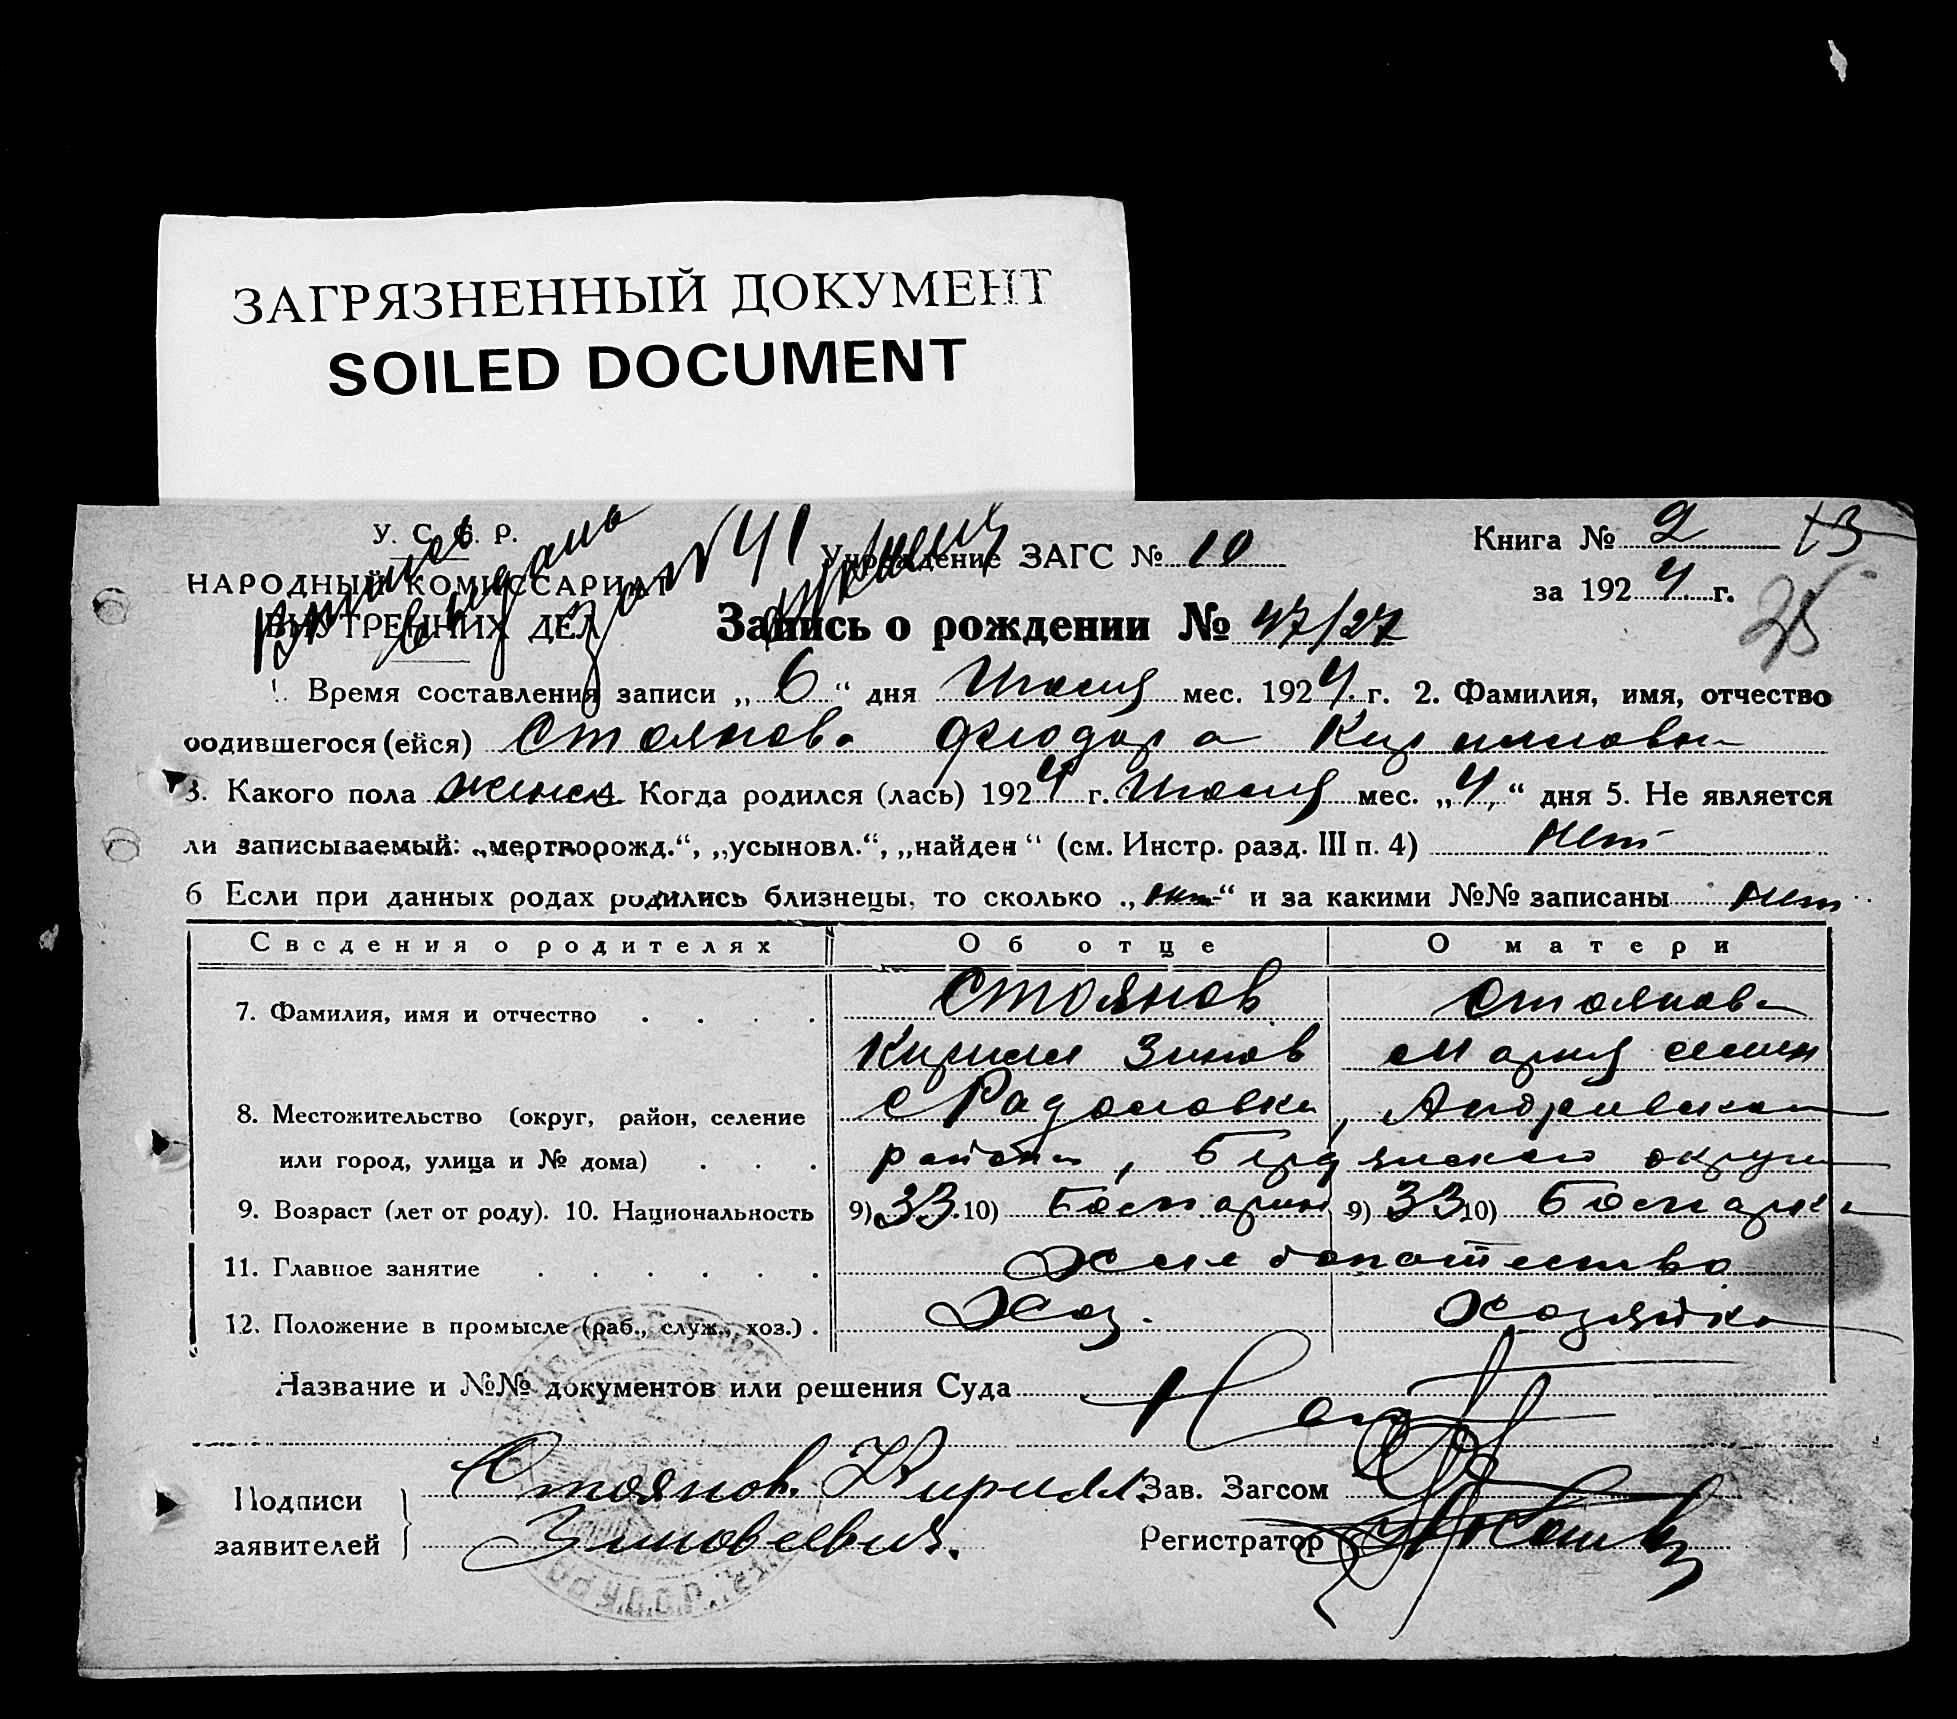 ЗАГРЯЗНЕННЫЙ ДОКУМЕНТ
SOILED DOCUMENT
У. С. С. Р.
НАРОДНЫЙ КОМИССАРИАТ
ВНУТРЕННИХ ДЕЛ
Учреждение ЗАГС № 10
Книга № 2
13
за 1924 г.
25
Запись о рождении № 47/27
1. Время составления записи „6“ дня Июля мес. 1924 г. 2. Фамилия, имя, отчество
родившегося (ейся) Стоянова Феодора Кирилловна
3. Какого пола женск Когда родился (лась) 1924 г. Июля мес. „4“ дня 5. Не является
ли записываемый: „мертворожд.“, „усыновл.“, „найден“ (см. Инстр. разд. III п. 4) нет
6 Если при данных родах родились близнецы, то сколько „нет“ и за какими №№ записаны нет
Сведения о родителях Об отце О матери
7. Фамилия, имя и отчество . . . . Стоянов Стоянова
Кирилл Зинов Мария
8. Местожительство (округ, район, селение с Радоловка, Андривского
или город, улица и № дома) . . . района, Бердянского округа
9. Возраст (лет от роду). 10. Национальность 9) 33 10) Болгарин 9) 33 10) Болгарка
11. Главное занятие . . . . . . Хлебопашество
12. Положение в промысле (раб., служ., хоз.) . Хоз. Хозяйка
Название и №№ документов или решения Суда
Подписи
заявителей
Стоянов. Кирилл
Зиновеевич.
Зав. Загсом
Регистратор